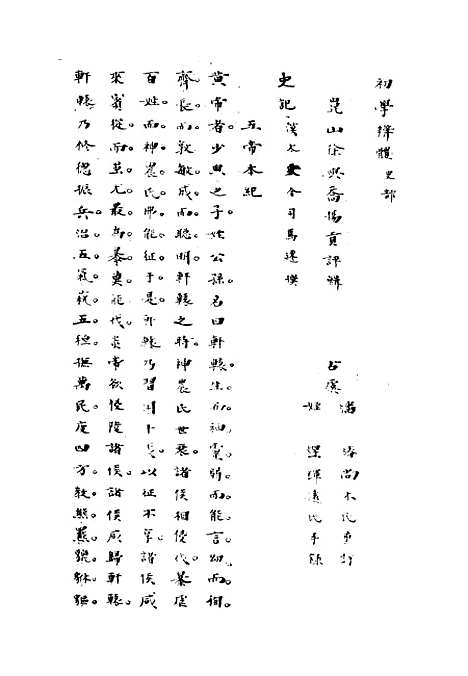 初學辯體史部
崑山徐與喬揚貢評輯
史記 漢太史令司馬遷撰
五帝本紀
黄帝者。少典之子。姓公孫。名曰軒轅。生而神靈。弱而能言。幼而徇
齊。長而敦敏。成而聰明。軒轅之時。神農氏世衰。諸侯相侵伐。暴虐
百姓。而神農氏弗能征。于是軒轅乃習用干戈。以征不享。諸侯咸
來賓從。而蚩尤最爲暴。莫能伐。炎帝欲侵陵諸侯。諸侯咸歸軒轅。
軒轅乃修德振兵。治五氣。蓺五種。撫萬民。度四方。敎熊。羆。貔。貅。貙。